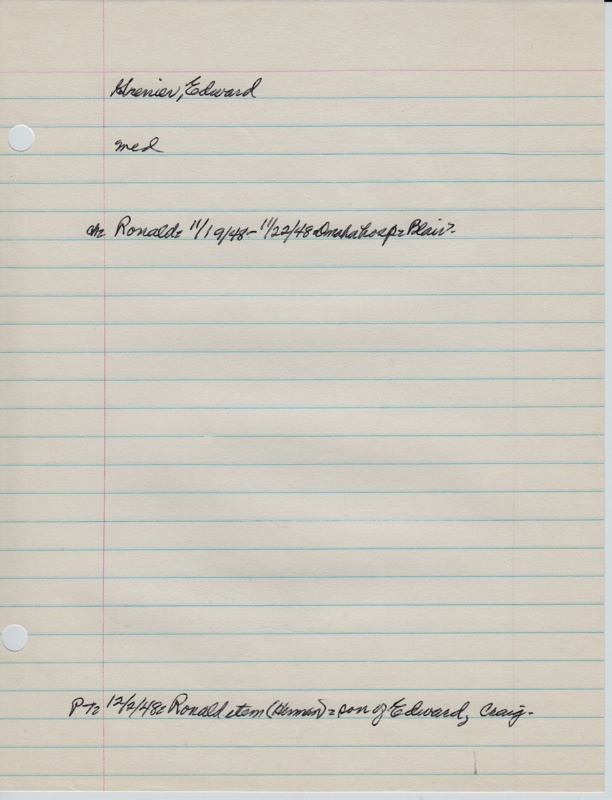 Grenier, Edward
med
ch= Ronald= 11/19/48- 11/22/48 Omaha hosp= Blair-
PT= 12/2/48= Ronald item (Herman)= son of Edward, Craig-